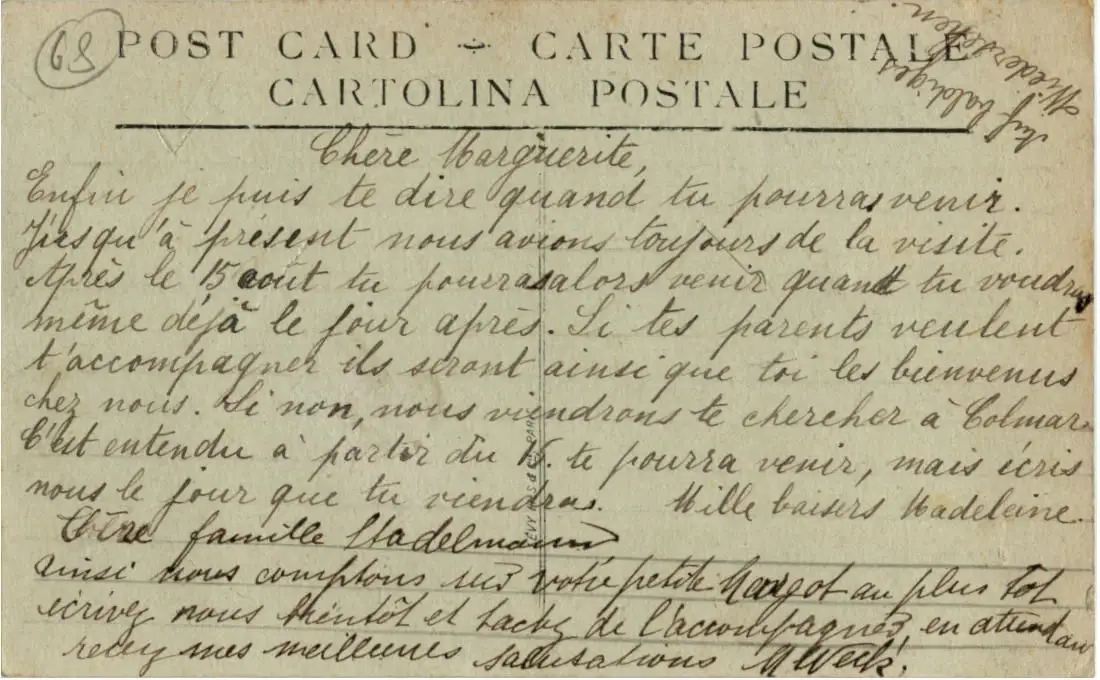 68
POST CARD - CARTE POSTALE
CARTOLINA POSTALE
Auf baldiges
Wiedersehen.
Chère Marguerite,
Enfin je puis te dire quand tu pourras venir.
Jusqu'à présent nous avions toujours de la visite.
Après le 15 août tu pourras alors venir quand tu voudras
même déjà le jour après. Si tes parents veulent
t'accompagner ils seront ainsi que toi les bienvenus
chez nous. Si non, nous viendrons te chercher à Colmar.
C'est entendu à partir du 15. te pourra venir, mais écris
nous le jour que tu viendras. Mille baisers Madeleine.
famille Stadelmann
ainsi nous comptons sur votre petite Margot au plus tôt
écrivez nous bientôt et tachez de l'accompagner, en attendant
recey mes meilleures salutations M Weck.